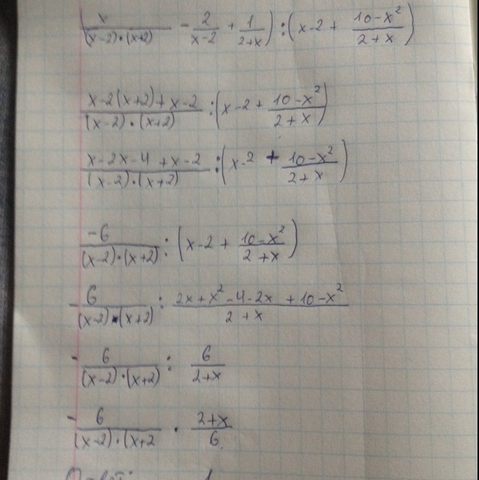 x/((x-2)·(x+2)) - 2/(x-2) + 1/(2+x)) : (x-2 + (10-x²)/(2+x))
(x-2(x+2)+x-2)/((x-2)·(x+2)) : (x-2+ (10-x²)/(2+x))
(x-2x-4+x-2)/((x-2)·(x+2)) : (x-2 + (10-x²)/(2+x))
-6/((x-2)·(x+2)) : (x-2 + (10-x²)/(2+x))
- 6/((x-2)·(x+2)) : (2x+x²-4-2x+10-x²)/(2+x)
- 6/((x-2)·(x+2)) : 6/(2+x)
- 6/((x-2)·(x+2) · (2+x)/6